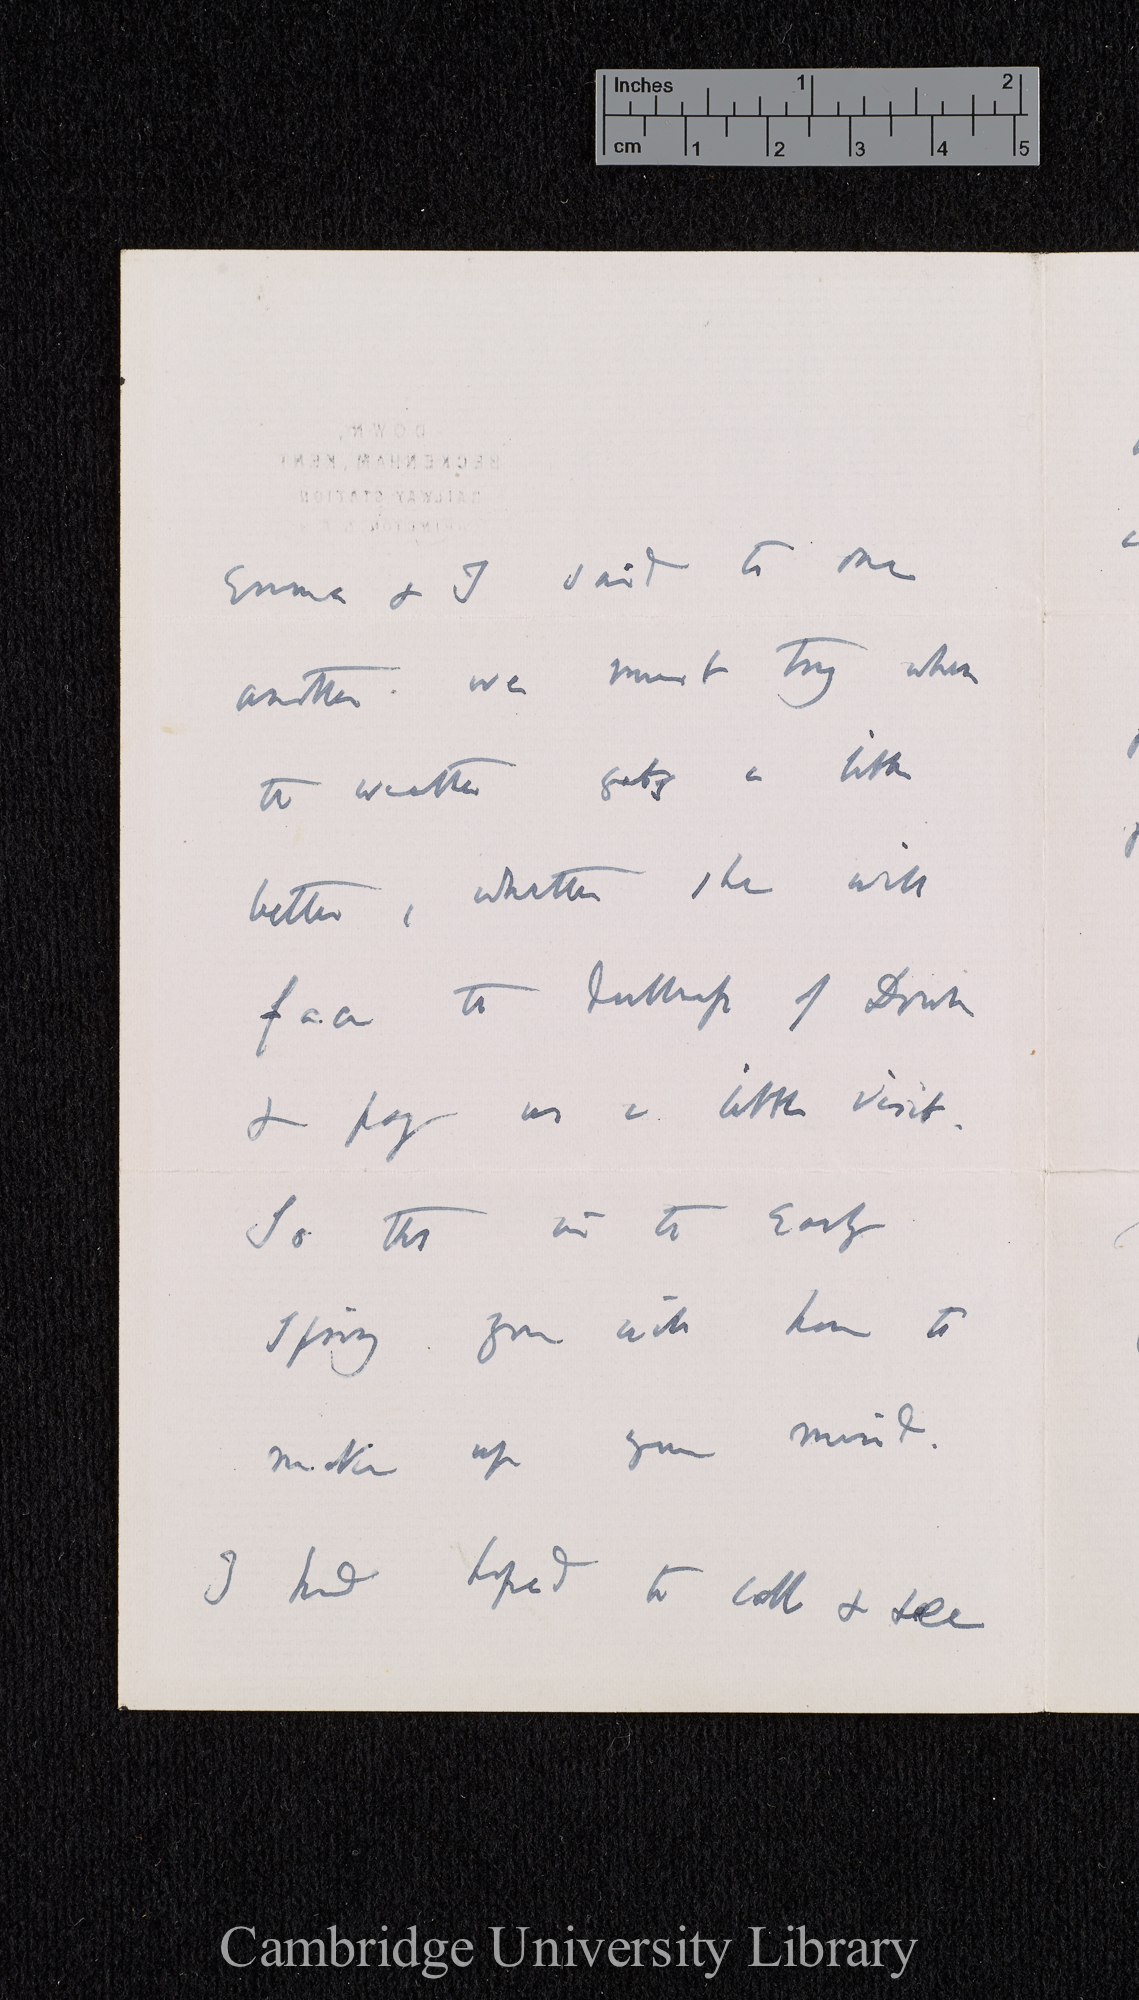 Inches 1 2
cm 1 2 3 4 5
DOWN,
BECKENHAM, KENT
RAILWAY STATION
Emma & I said to one
another we must try when
the weather gets a little
better, whether she will
face the dullness of Down
& pay us a little visit.
So that in the Early
Spring you will have to
make up your mind.
I had hoped to call & see
Cambridge University Library